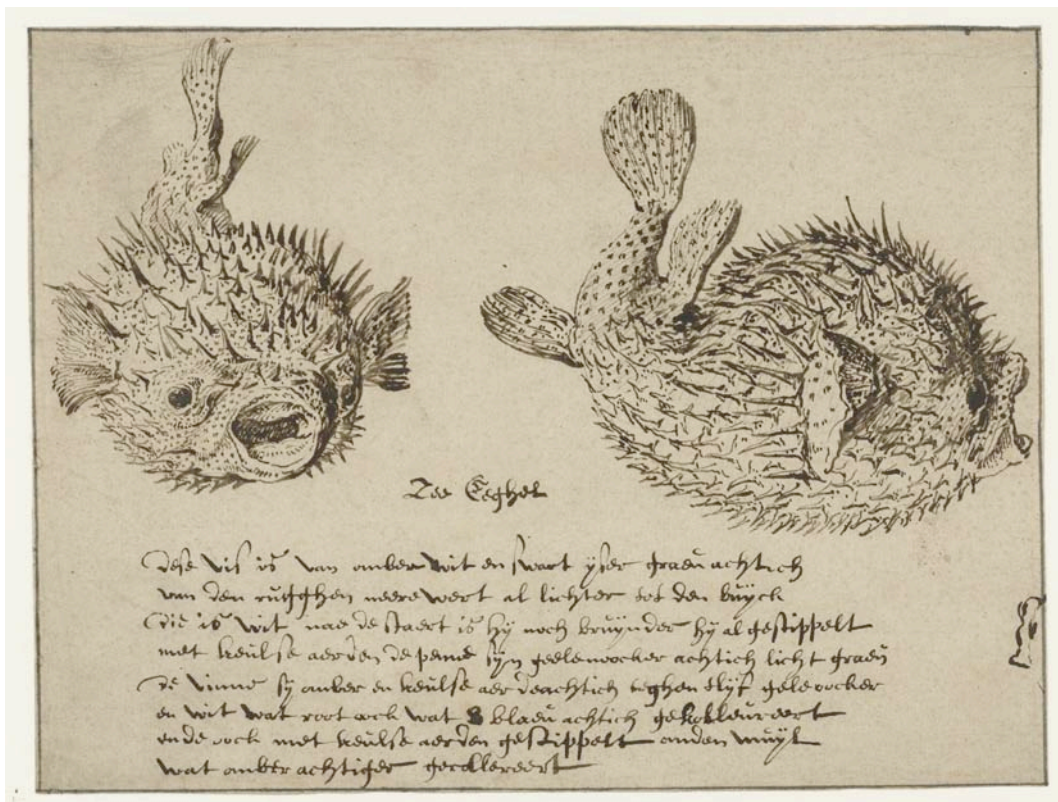 Zee Eeghel
dese vis is van omber wit en swart yser graeu achtich
van den rugghen neere wert al lichter tot den buyck
die is wit nae de staert is hy noch bruynder hy al gestippelt
met keulse aerden de penne syn geelenoocker achtich licht graeu
de vinne sy omber en keulse aerdeachtich teghen tlyf geleoocker
en wit wat root oock wat blaeu achtich gekolleureert
ende oock met keulse aerden gestippelt anden muyl
wat omber achtiger gecollereert